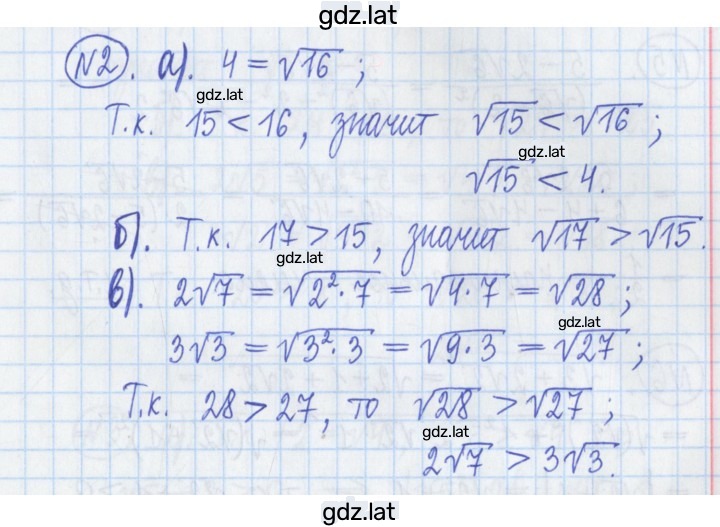 gdz.lat
№2. а). 4 = √16 ;
gdz.lat
Т.к. 15 < 16, значит √15 < √16 ;
gdz.lat
√15 < 4.
б). Т.к. 17 > 15, значит √17 > √15.
gdz.lat
в). 2√7 = √2²·7 = √4·7 = √28 ;
gdz.lat
3√3 = √3²·3 = √9·3 = √27 ;
Т.к. 28 > 27, то √28 > √27 ;
gdz.lat
2√7 > 3√3.
gdz.lat